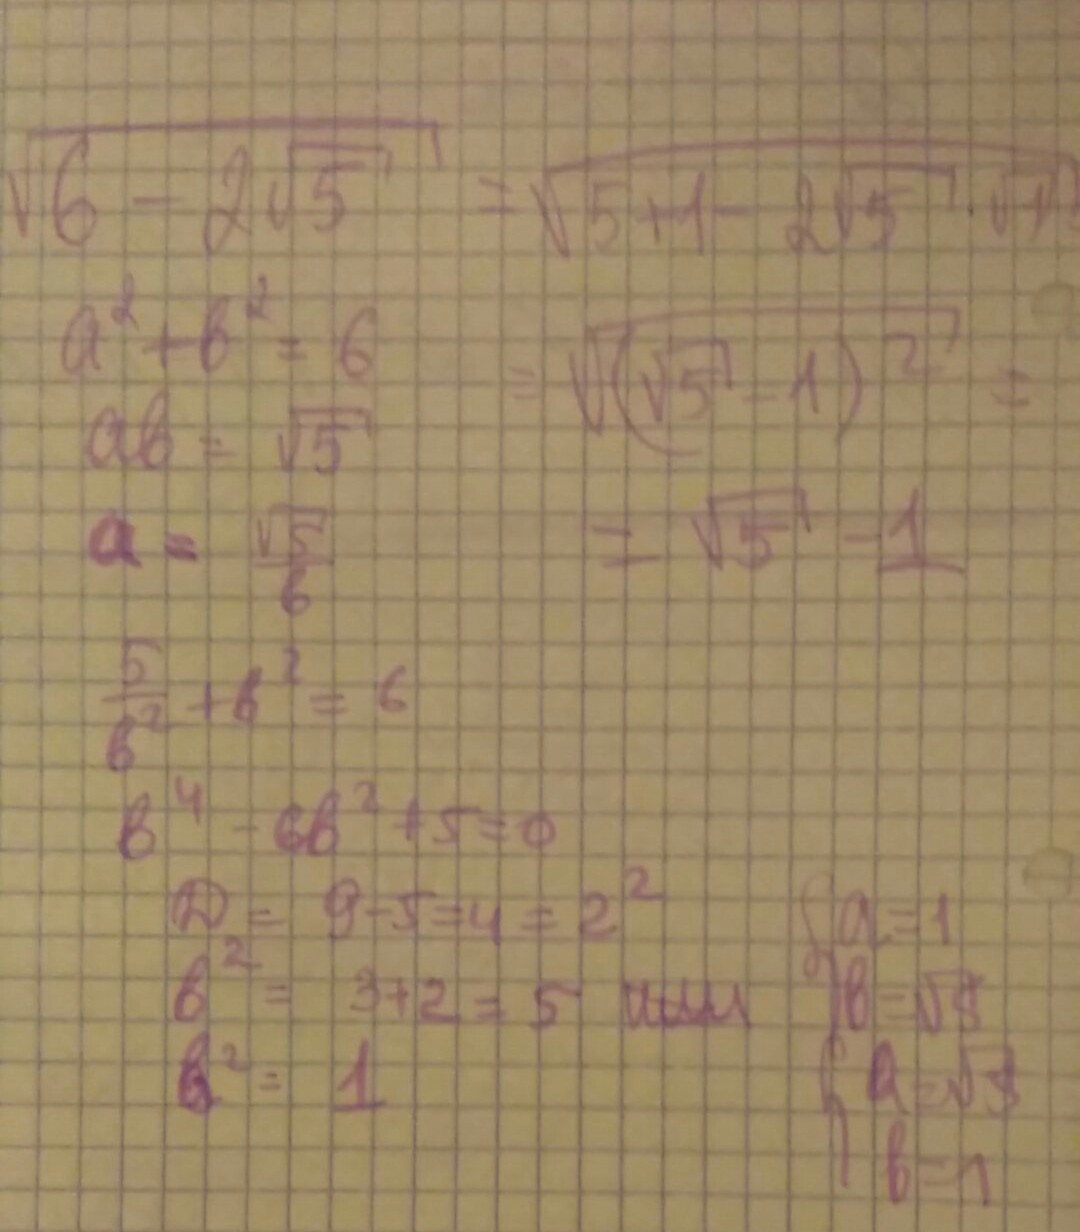 √(6 - 2√5) = √(5+1 - 2√5 · √1)
a² + b² = 6
= √((√5 - 1)²) =
ab = √5
a = √5/b
= √5 - 1
5/b² + b² = 6
b⁴ - 6b² + 5 = 0
D = 9-5=4=2²
b² = 3+2 = 5 или
b² = 1
{a=1
b=√5
{a=√5
b=1